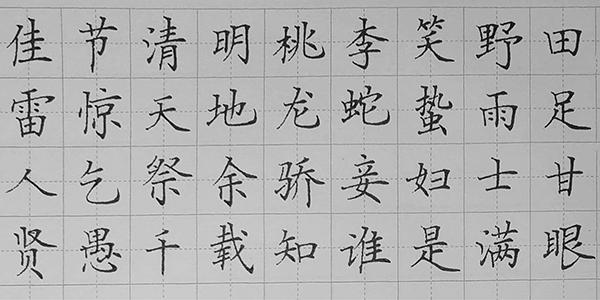 佳节清明桃李笑野田
雷惊天地龙蛇蛰雨足
人乞祭余骄妾妇士甘
贤愚千载知谁是满眼